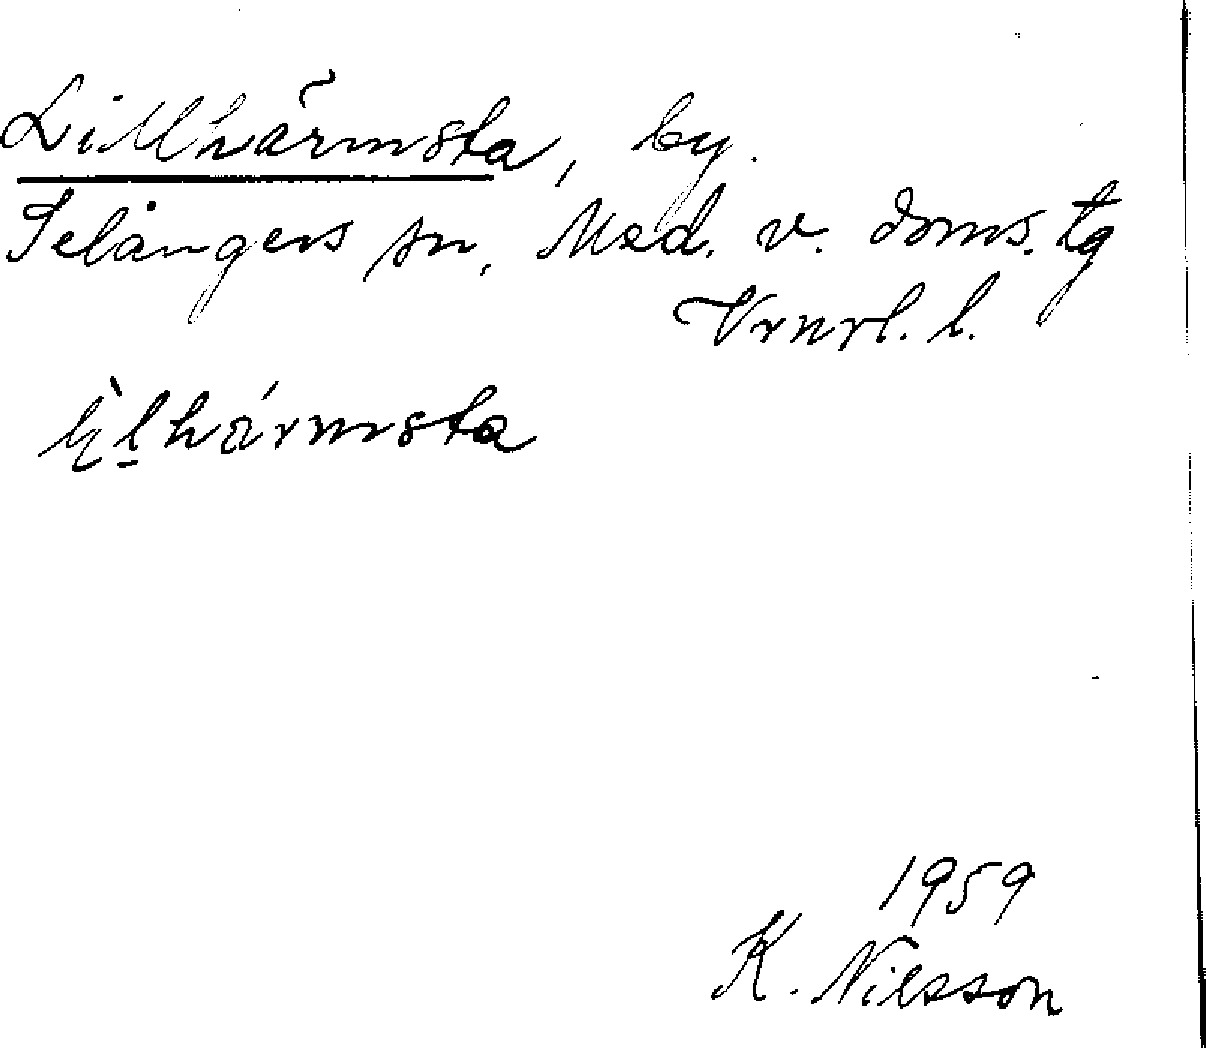 Lillhärmsta, by.
Selångers sn, Med. v. doms. tg
Vrnrl. l.
1959
K. Nilsson